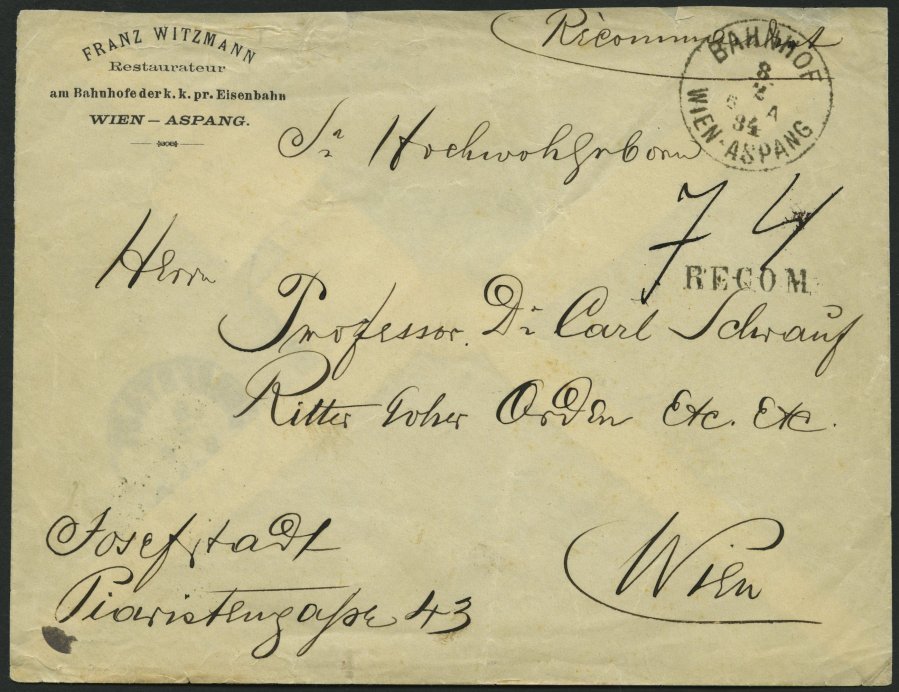 FRANZ WITZMANN
Restaurateur
am Bahnhofe der k. k. pr. Eisenbahn
WIEN – ASPANG.
Recommandirt
BAHNHOF
8
84
WIEN-ASPANG
Sr Hochwohlgeborn
74
RECOM
Herrn
Professor. Dr Carl Schrauf
Ritter hoher Orden Etc. Etc.
Josefstadt
Piaristengaße 43
Wien